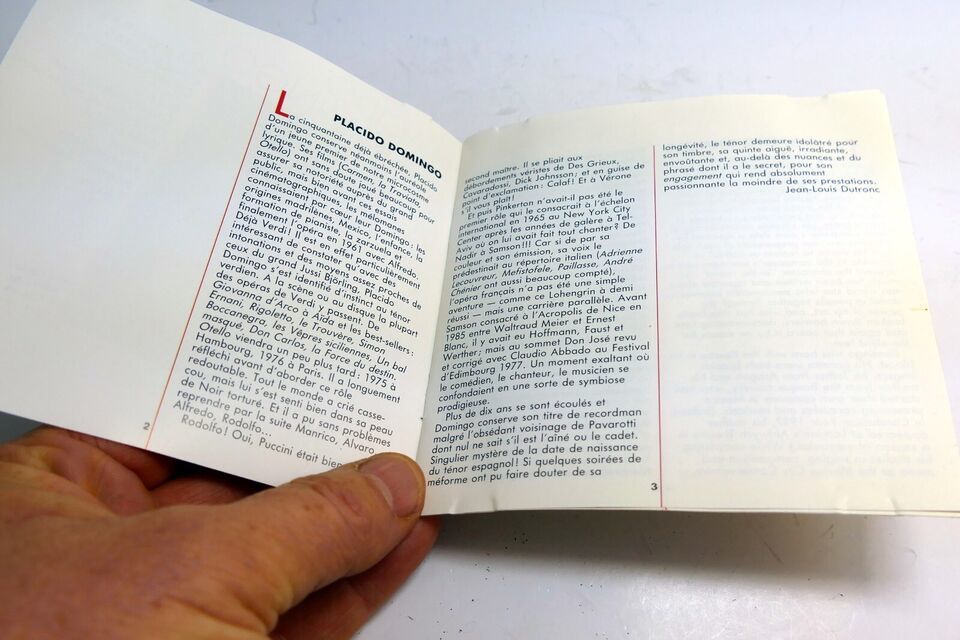 PLACIDO DOMINGO
La cinquantaine déjà ébréchée, Placido
Domingo conserve néanmoins l'auréole
d'un jeune premier de notre microcosme
lyrique. Ses films (Carmen, la Traviata,
Otello) ont sans doute joué beaucoup pour
assurer sa notoriété auprès du grand
public, mais bien avant ces essais
cinématographiques, les mélomanes
connaissaient par cœur leur Domingo : les
origines madrilènes, Mexico, l'enfance, la
formation de pianiste, la zarzuela et
finalement l'opéra en 1961 avec Alfredo.
Déjà Verdi ! Il est en effet particulièrement
intéressant de constater qu'avec des
intonations et des moyens assez proches de
ceux du grand Jussi Björling, Placido
Domingo s'est identifié d'instinct au ténor
verdien. A la scène ou au disque la plupart
des opéras de Verdi y passent. De
Giovanna d'Arco à Aïda et les best-sellers :
Ernani, Rigoletto, le Trouvère, Simon
Boccanegra, les Vêpres siciliennes, Un bal
masqué, Don Carlos, la Force du destin.
Otello viendra un peu plus tard : 1975 à
Hambourg, 1976 à Paris. Il a longuement
réfléchi avant d'aborder ce rôle
redoutable. Tout le monde a crié casse-
cou, mais lui s'est senti bien dans sa peau
de Noir torturé. Et il a pu sans problèmes
reprendre par la suite Manrico, Alvaro
Alfredo, Rodolfo...
Rodolfo ! Oui, Puccini était bien
2
second maître. Il se pliait aux
débordements véristes de Des Grieux,
Cavaradossi, Dick Johnsson ; et en guise de
point d'exclamation : Calaf ! Et à Vérone
s'il vous plaît !
Et puis Pinkerton n'avait-il pas été le
premier rôle qui le consacrait à l'échelon
international en 1965 au New York City
Center après les années de galère à Tel-
Aviv où on lui avait fait tout chanter ? De
Nadir à Samson !!! Car si de par sa
couleur et son émission, sa voix le
prédestinait au répertoire italien (Adrienne
Lecouvreur, Mefistofele, Paillasse, André
Chénier ont aussi beaucoup compté),
l'opéra français n'a pas été une simple
aventure — comme ce Lohengrin à demi
réussi — mais une carrière parallèle. Avant
Samson consacré à l'Acropolis de Nice en
1985 entre Waltraud Meier et Ernest
Blanc, il y avait eu Hoffmann, Faust et
Werther ; mais au sommet Don José revu
et corrigé avec Claudio Abbado au Festival
d'Edimbourg 1977. Un moment exaltant où
le comédien, le chanteur, le musicien se
confondaient en une sorte de symbiose
prodigieuse.
Plus de dix ans se sont écoulés et
Domingo conserve son titre de recordman
malgré l'obsédant voisinage de Pavarotti
dont nul ne sait s'il est l'aîné ou le cadet.
Singulier mystère de la date de naissance
du ténor espagnol ! Si quelques soirées de
méforme ont pu faire douter de sa
3
longévité, le ténor demeure idolâtré pour
son timbre, sa quinte aiguë, irradiante,
envoûtante et, au-delà des nuances et du
phrasé dont il a le secret, pour son
engagement qui rend absolument
passionnante la moindre de ses prestations.
Jean-Louis Dutronc